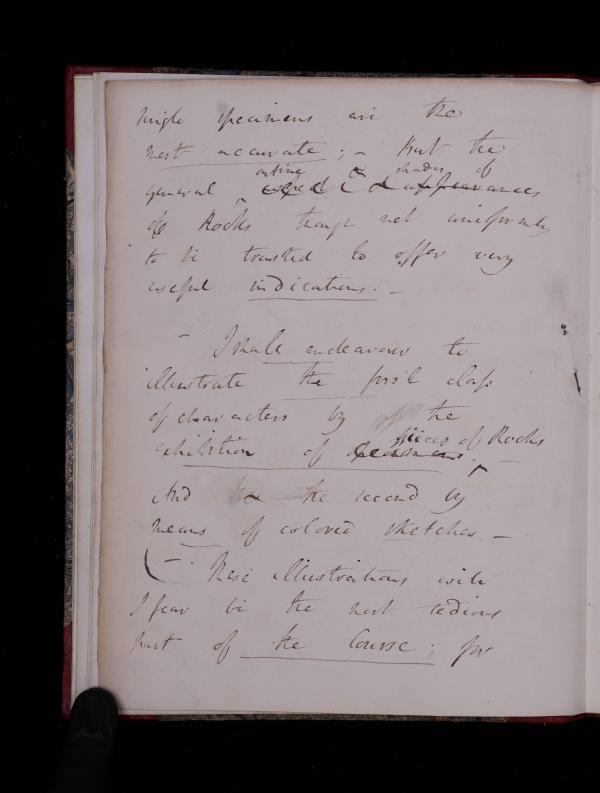 single specimens are the
most accurate; – But the
outline & shades of
general appearances
of Rocks though not uniformly
to be trusted to offer very
useful indications. –
– I shall endeavour to
illustrate the first class
of characters by the
pieces of Rocks
exhibition of specimens; –
And the second by
means of colored sketches –
– These illustrations will
I fear be the most tedious
part of the Course; for